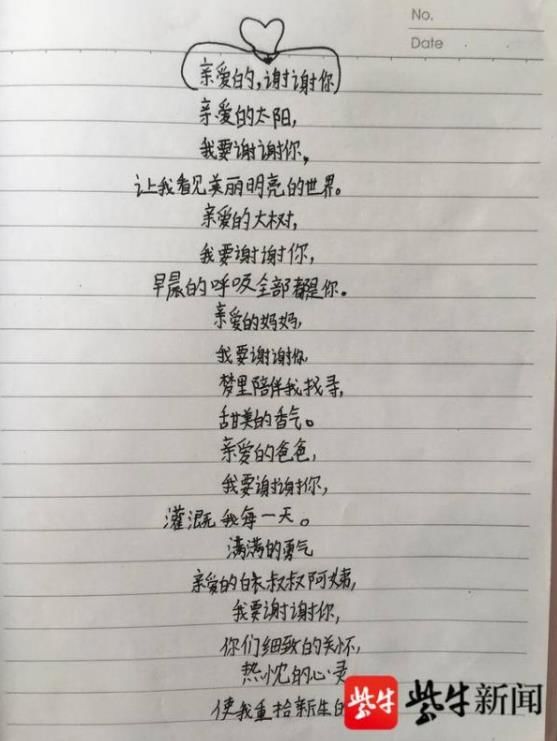 No.
Date
亲爱的,谢谢你
亲爱的太阳,
我要谢谢你,
让我看见美丽明亮的世界。
亲爱的大树,
我要谢谢你,
早晨的呼吸全部都是你。
亲爱的妈妈,
我要谢谢你
梦里陪伴我找寻,
甜美的香气。
亲爱的爸爸,
我要谢谢你,
灌溉我每一天。
满满的勇气
亲爱的白衣叔叔阿姨,
我要谢谢你,
你们细致的关怀,
热忱的心灵
使我重拾新生的
紫牛 紫牛新闻